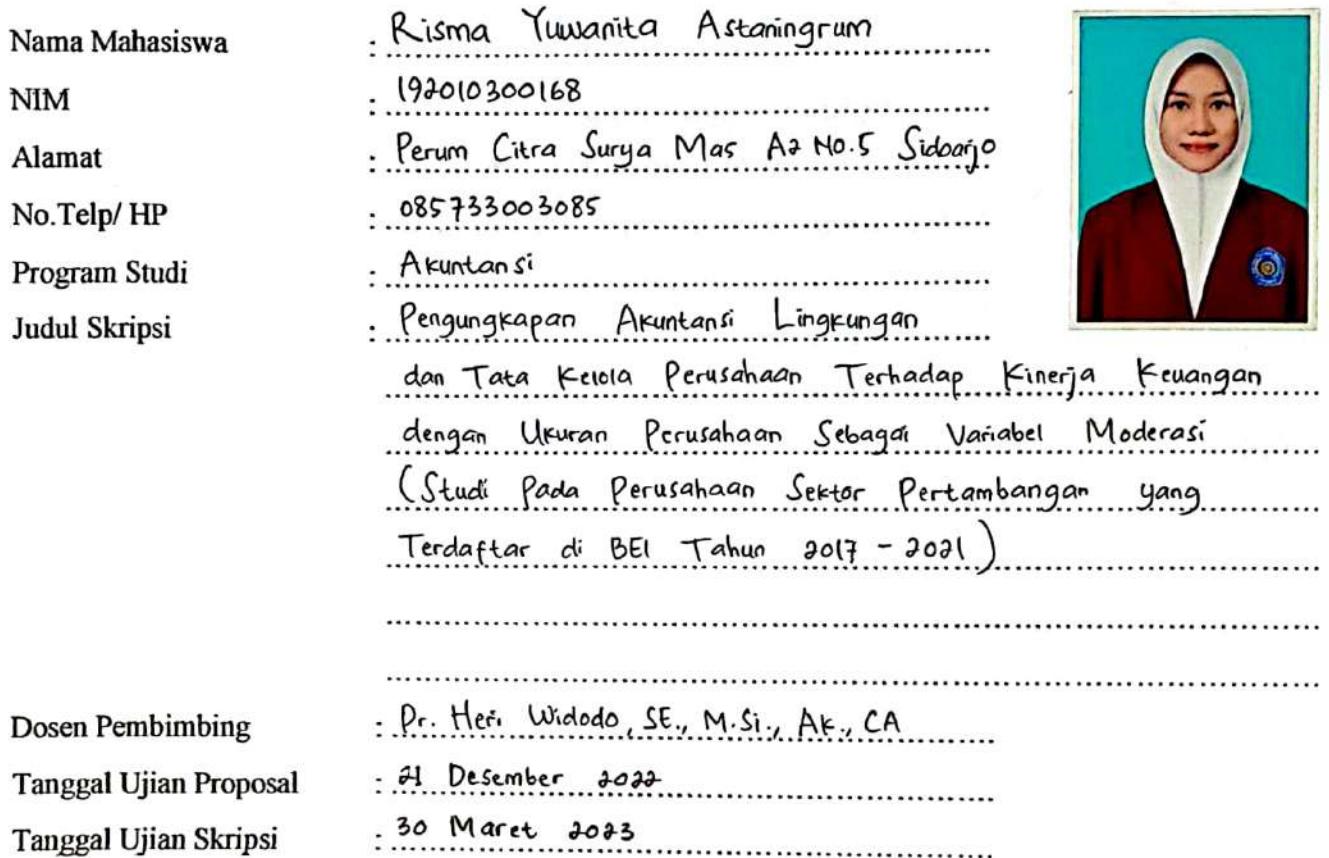 Nama Mahasiswa : Risma Yuwanita Astaningrum
NIM : 192010300168
Alamat : Perum Citra Surya Mas A2 No.5 Sidoarjo
No.Telp/ HP : 085733003085
Program Studi : Akuntansi
Judul Skripsi : Pengungkapan Akuntansi Lingkungan
dan Tata Kelola Perusahaan Terhadap Kinerja Keuangan
dengan Ukuran Perusahaan Sebagai Variabel Moderasi
(Studi Pada Perusahaan Sektor Pertambangan yang
Terdaftar di BEI Tahun 2017 - 2021)
Dosen Pembimbing : Dr. Heri Widodo, SE., M.Si., Ak., CA
Tanggal Ujian Proposal : 21 Desember 2022
Tanggal Ujian Skripsi : 30 Maret 2023